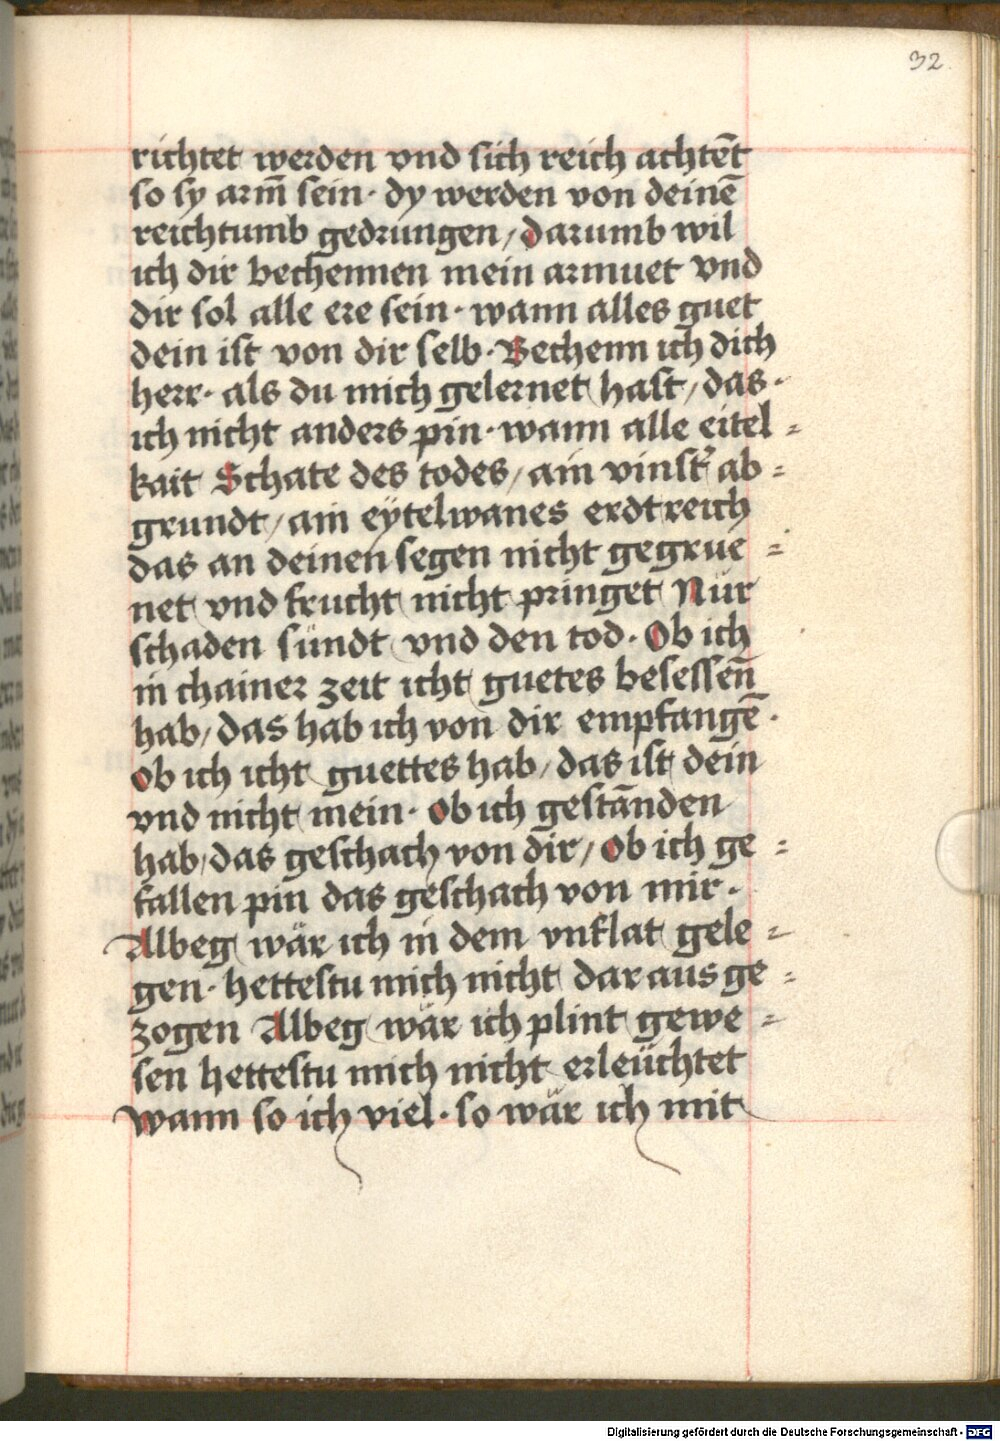 32.
richtet werden vnd sich reich achtēt
so sy arm̄ sein · dy werden von deinē
reichtumb gedrungen / darumb wil
ich dir bechennen mein armuet vnd
dir sol alle ere sein · wann alles guet
dein ist von dir selb · Bechenn ich dich
herr · als du mich gelernet hast / das ·
ich nicht anders pin · wann alle eitel =
kait Schate des todes / ain vinst᷑ ab =
grundt / ain eytelwanes erdtreich
das an deinen segen nicht gegrue =
net vnd frucht nicht pringet Nür
schaden sündt vnd den tod · Ob ich
in chainer zeit icht guetes besessen̄
hab / das hab ich von dir empfangē ·
Ob ich icht guettes hab / das ist dein
vnd nicht mein · Ob ich gestānden
hab / das geschach von dir / Ob ich ge =
fallen pin das geschach von mir ·
Albeg wär ich in dem vnflat gele =
gen · hettestu mich nicht dar aus ge =
zogen Albeg wär ich plint gewe =
sen hettestu mich nicht erleüchtet
Wann so ich viel · so wär ich mit
Digitalisierung gefördert durch die Deutsche Forschungsgemeinschaft - DFG